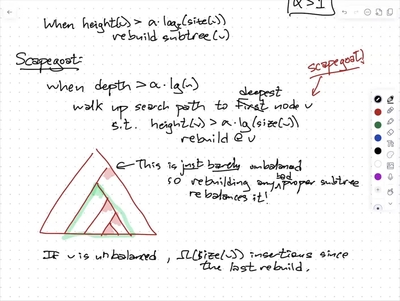 α > 1
when height(v) > α·log₂(size(v))
rebuild subtree(v)
Scapegoat:
scapegoat!
when depth > α·lg(n)
deepest
walk up search path to first node v
s.t. height(v) > α·lg(size(v))
rebuild @ v
This is just barely unbalanced
so rebuilding any bad proper subtree
rebalances it!
If v is unbalanced, Ω(size(v)) insertions since
the last rebuild.